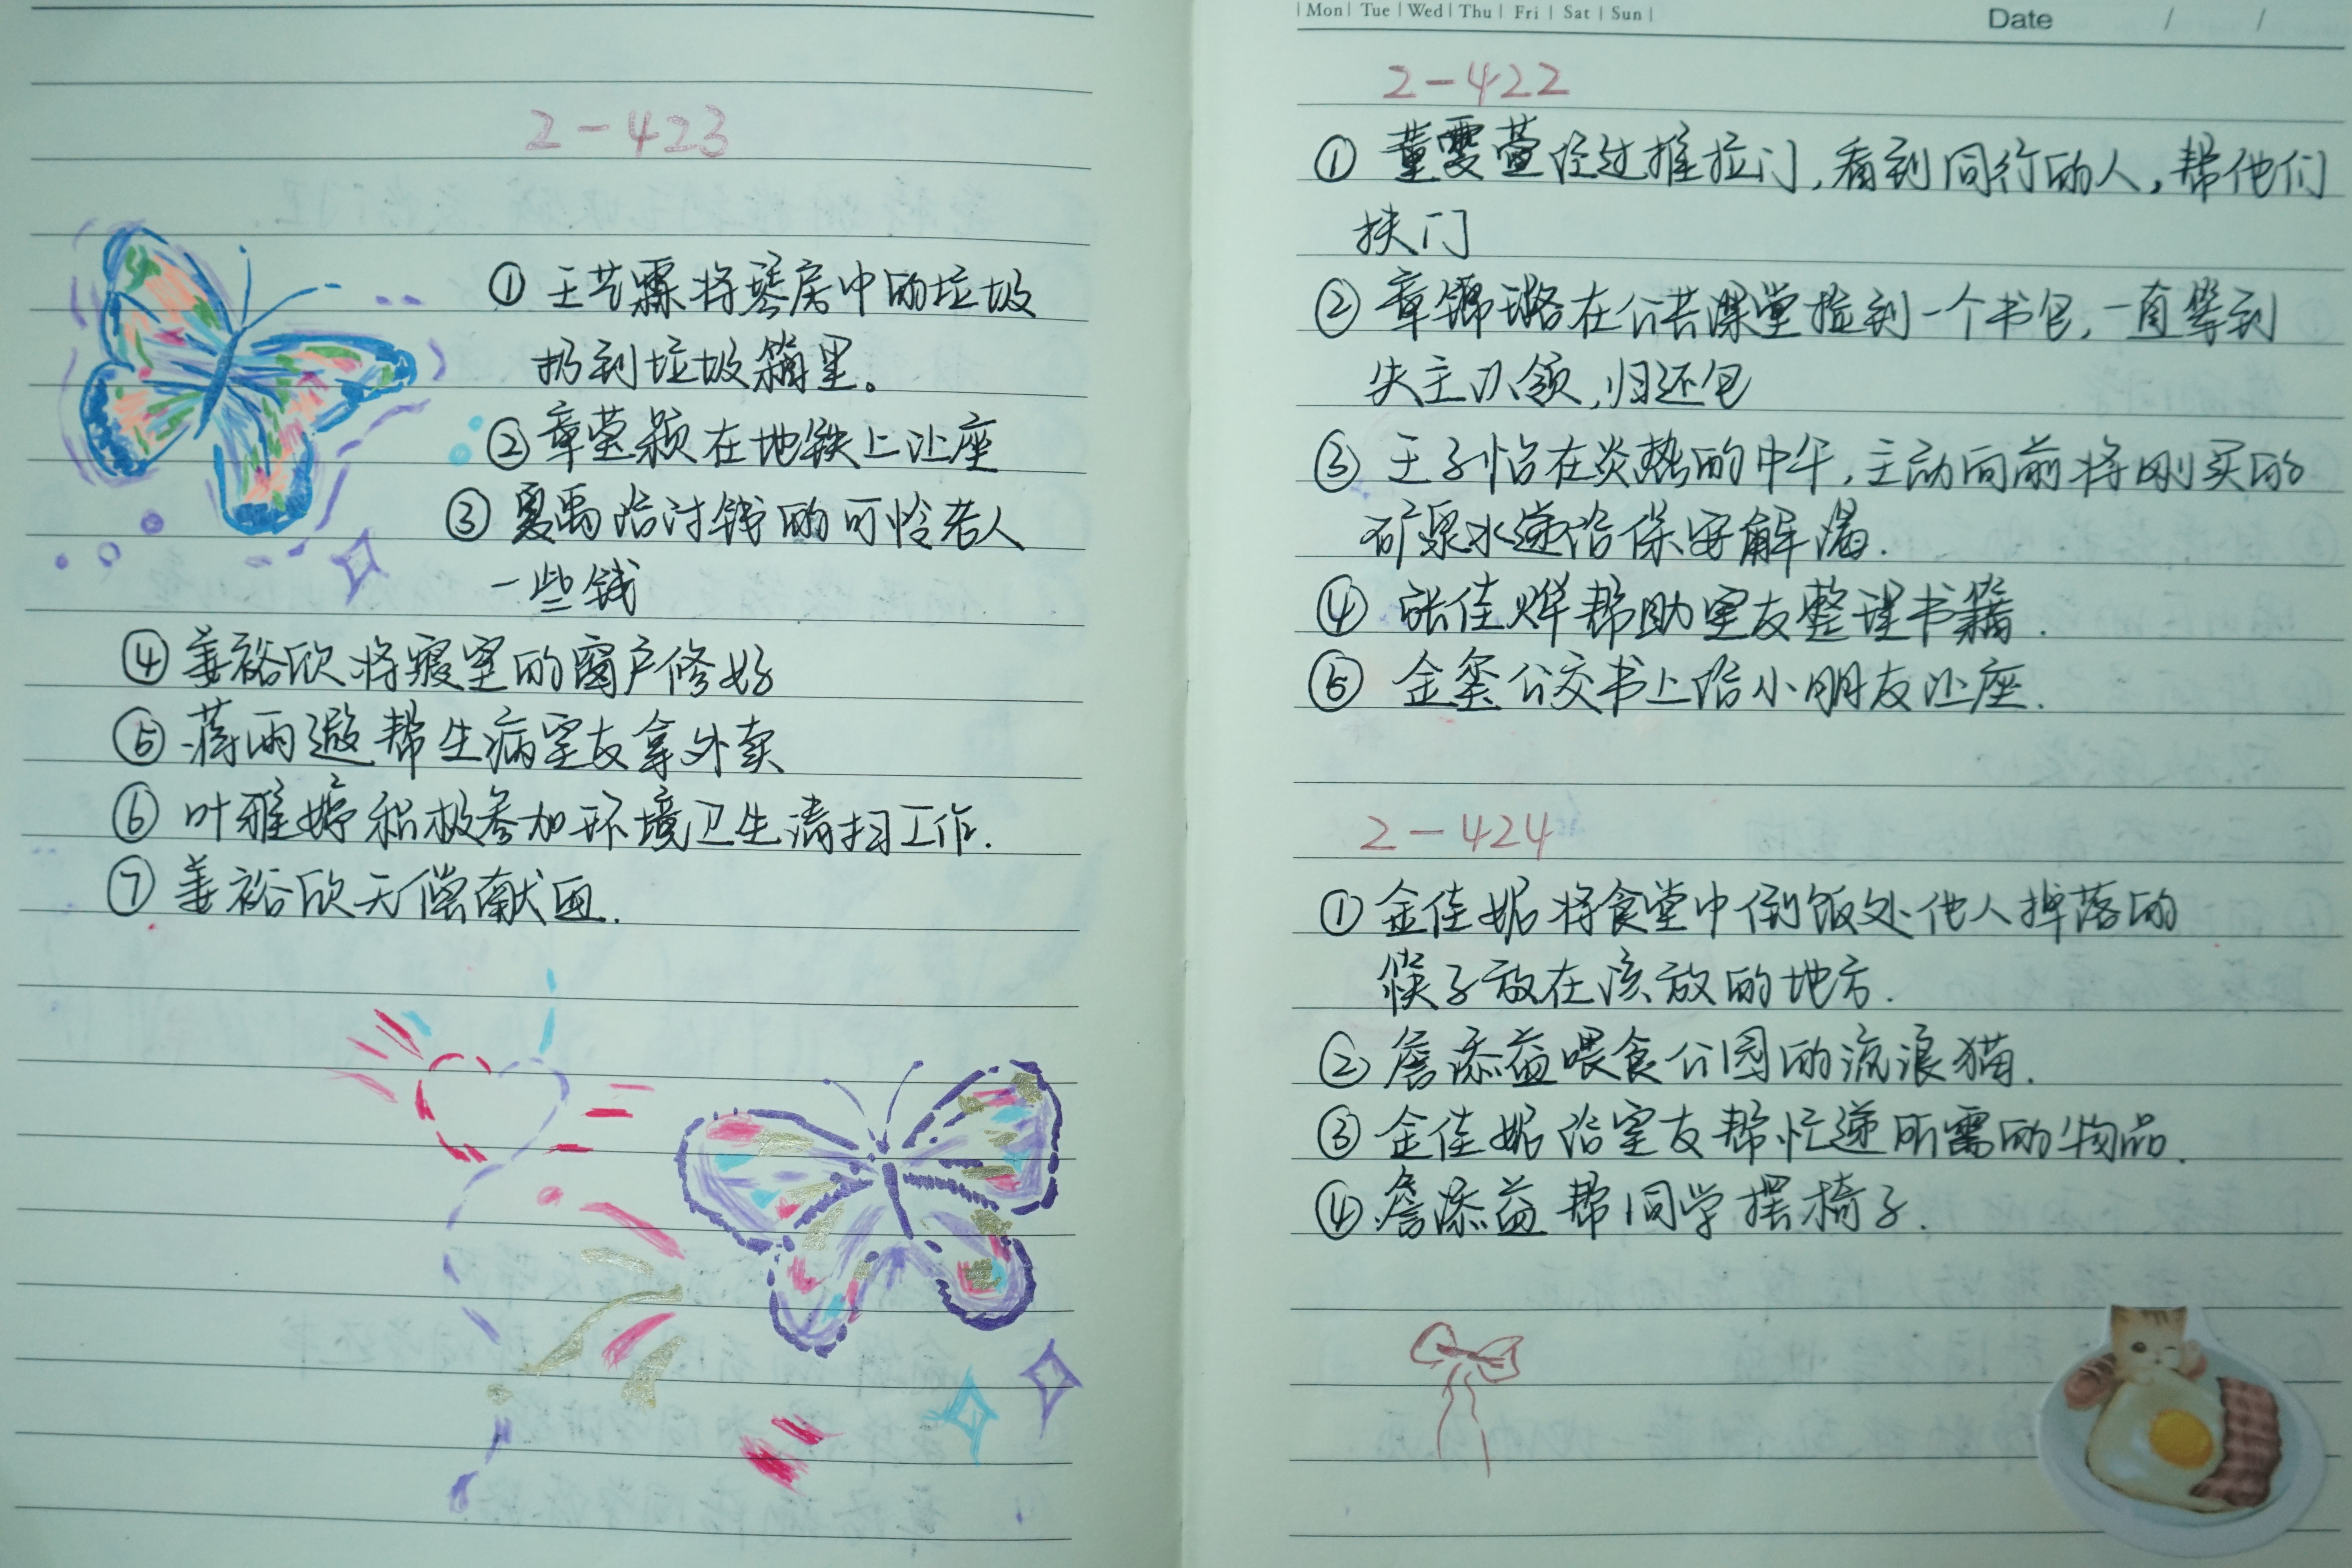 2-423
① 王艺霖将琴房中的垃圾
扔到垃圾箱里。
② 章莹颖在地铁上让座
③ 夏禹给讨钱的可怜老人
一些钱
④ 姜裕欣将寝室的窗户修好
⑤ 蒋雨邀帮生病室友拿外卖
⑥ 叶雅婷积极参加环境卫生清扫工作.
⑦ 姜裕欣无偿献血.
|Mon| Tue |Wed| Thu| Fri | Sat | Sun|
Date / /
2-422
① 董雯萱经过推拉门,看到同行的人,帮他们
扶门
② 章璐在公共课堂捡到一个书包,一直等到
失主认领,归还包
③ 王子怡在炎热的中午,主动向前将刚买的
矿泉水递给保安解渴.
④ 张佳烨帮助室友整理书籍.
⑤ 金玺公交书上给小朋友让座.
2-424
① 金佳妮将食堂中倒饭处他人掉落的
筷子放在该放的地方.
② 詹添益喂食公园的流浪猫.
③ 金佳妮给室友帮忙递所需的物品.
④ 詹添益帮同学摆椅子.